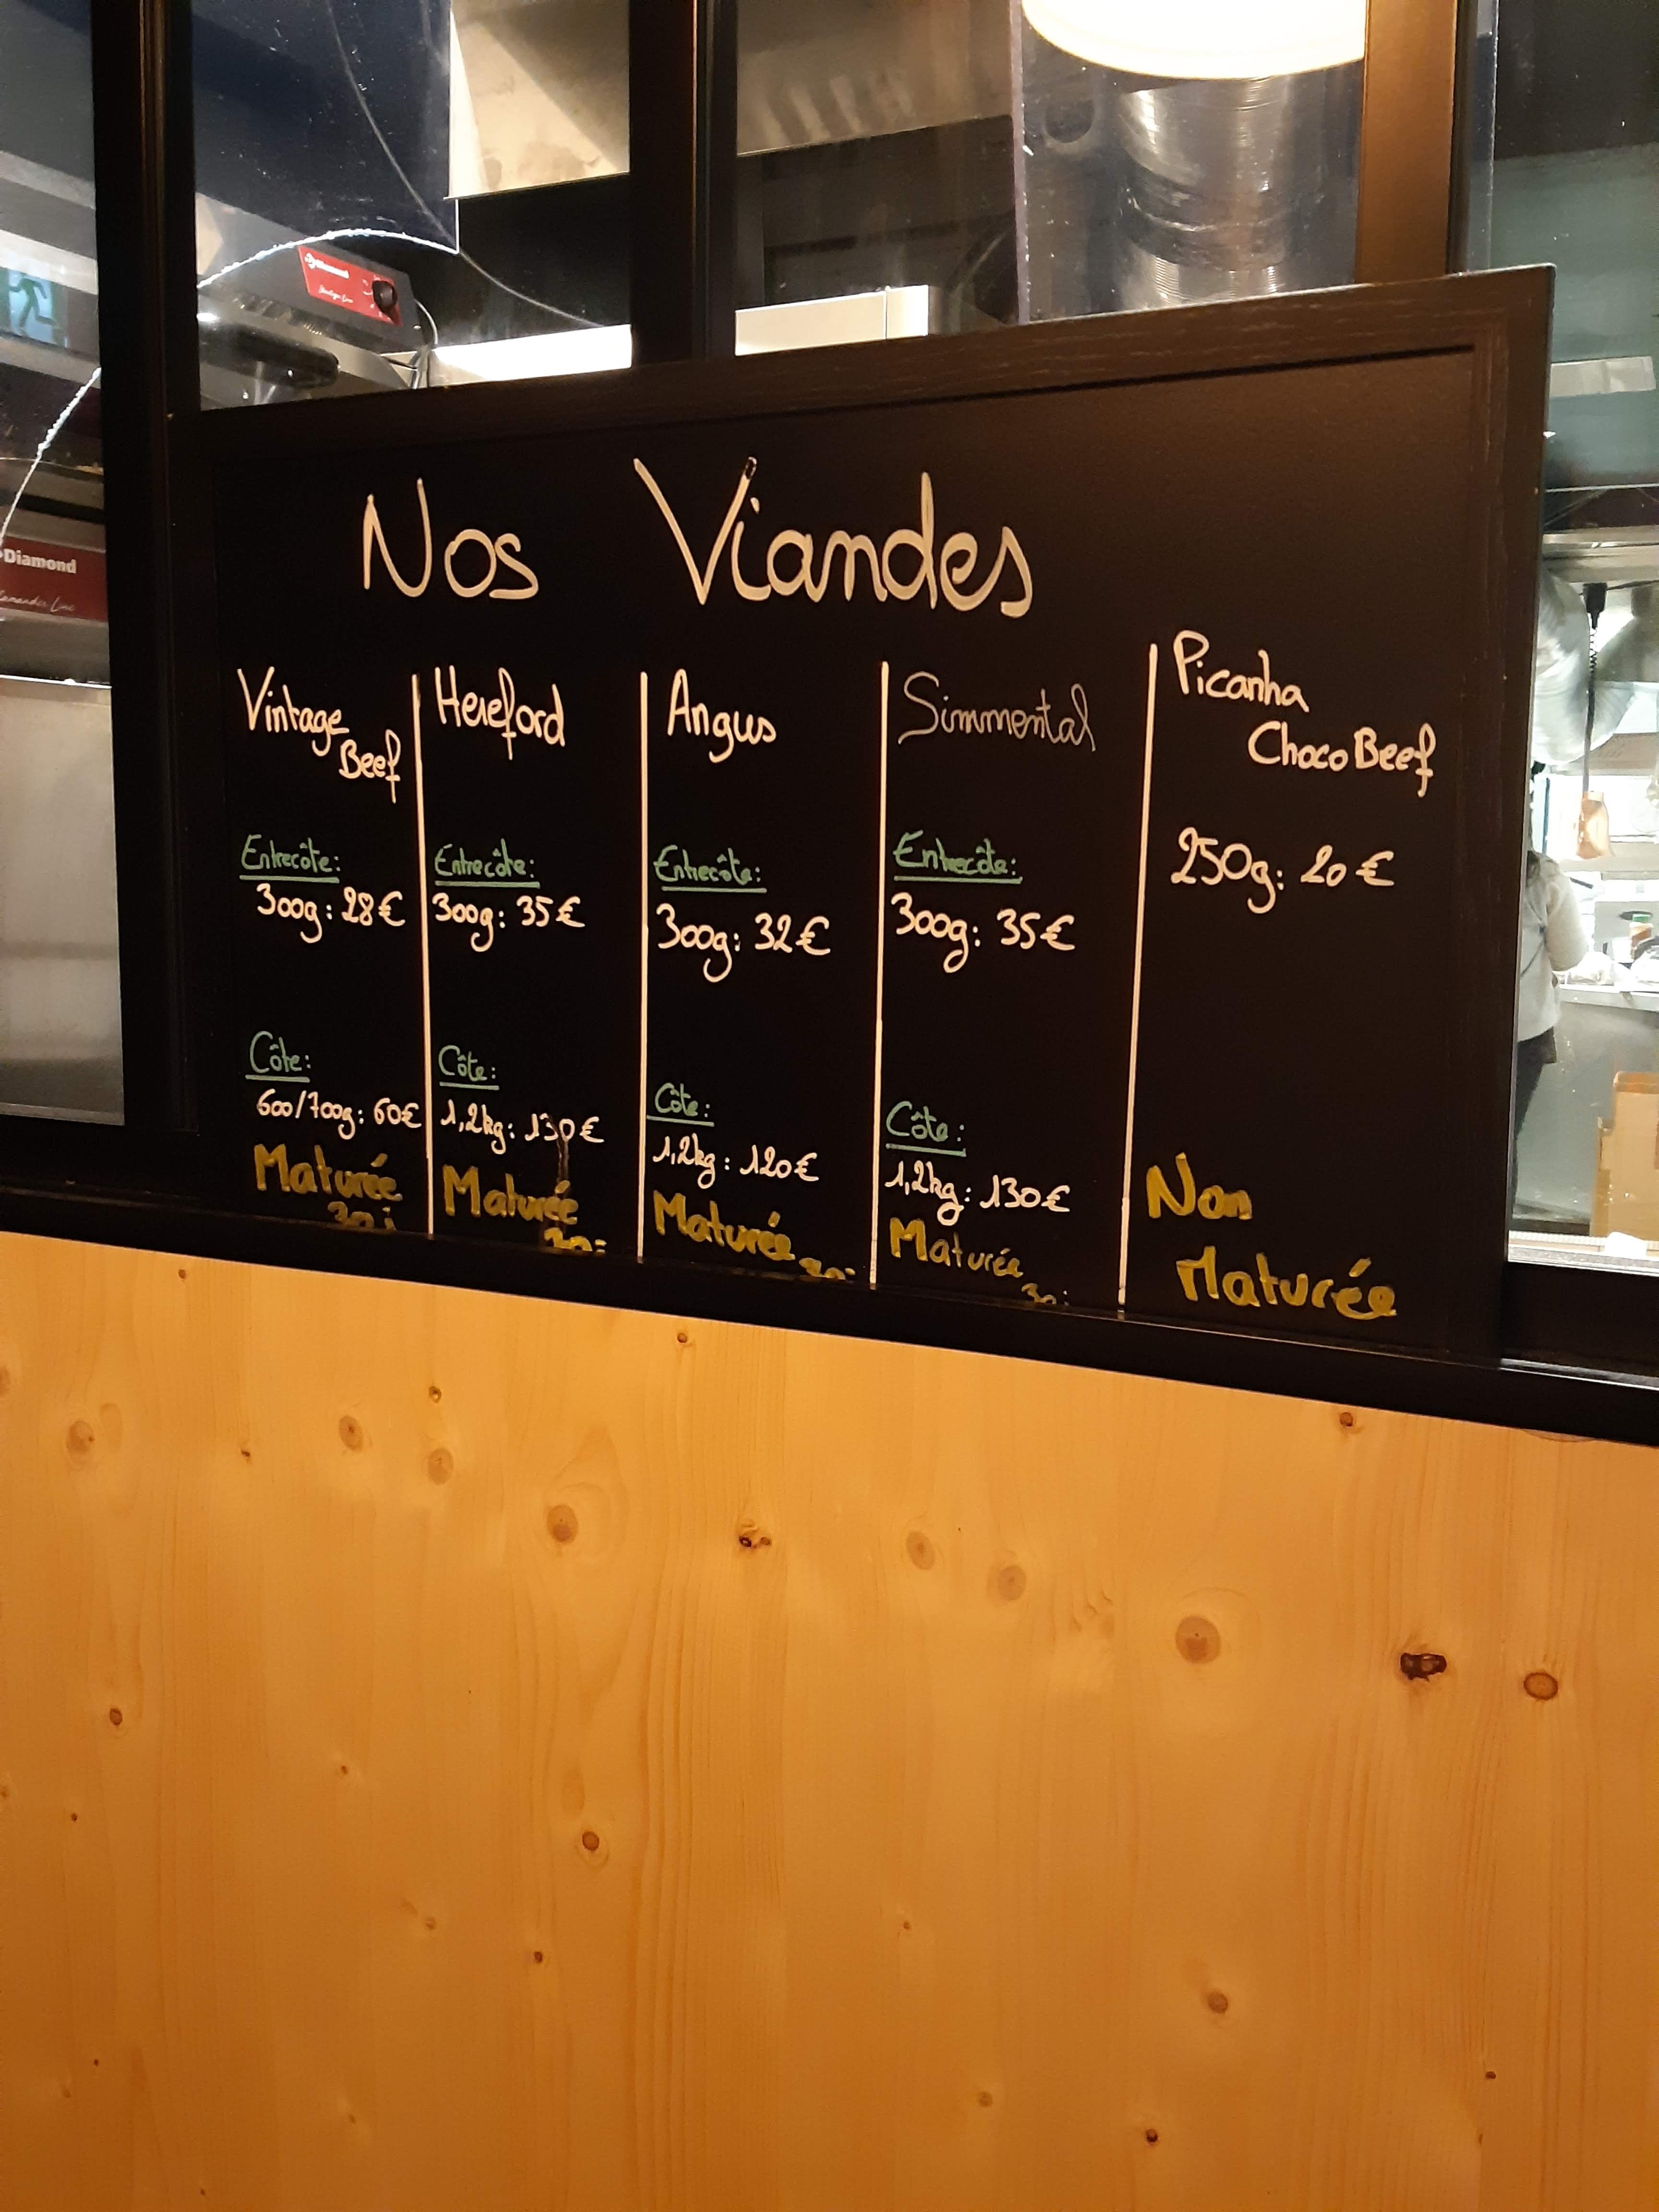 Diamond
Diamond
Nos Viandes
Vintage
Beef
Entrecôte:
300g: 28€
Côte:
600/700g: 60€
Maturée
30j
Hereford
Entrecôte:
300g: 35€
Côte:
1,2kg: 130€
Maturée
Angus
Entrecôte:
300g: 32€
Côte:
1,2kg: 120€
Maturée
Simmental
Entrecôte:
300g: 35€
Côte:
1,2kg: 130€
Maturée
Picanha
Choco Beef
250g: 20€
Non
Maturée